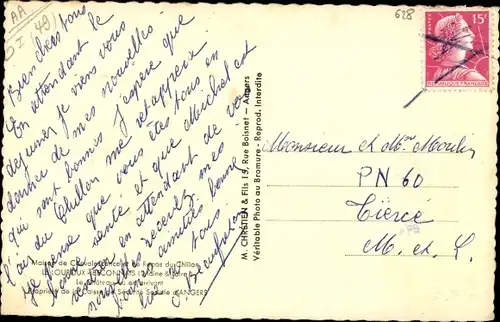 AA
DI 49
628
Bien chers tous
En attendant le
déjeuner je viens vous
donner de mes nouvelles
qui sont bonnes j'espère que
l'air du Chillon me retapera
je pense que vous êtes tous en
bonne santé et que Michel est
en attendant de
nouvelles recevez mes
amitiés bonne
à tous
M. CHRÉTIEN & Fils 15, Rue Boisnet - Angers
Véritable Photo au Bromure - Reprod. Interdite
Maison de Convalescence et de Repos du Chillon
LE LOUROUX-BÉCONNAIS (Maine & Loire)
Le Château en arrivant
Propriété de la Caisse de Sécurité Sociale d'ANGERS
POSTES
15F
RÉPUBLIQUE FRANÇAISE
Monsieur et Mme Moulin
PN 60
Tiercé
M. et L.